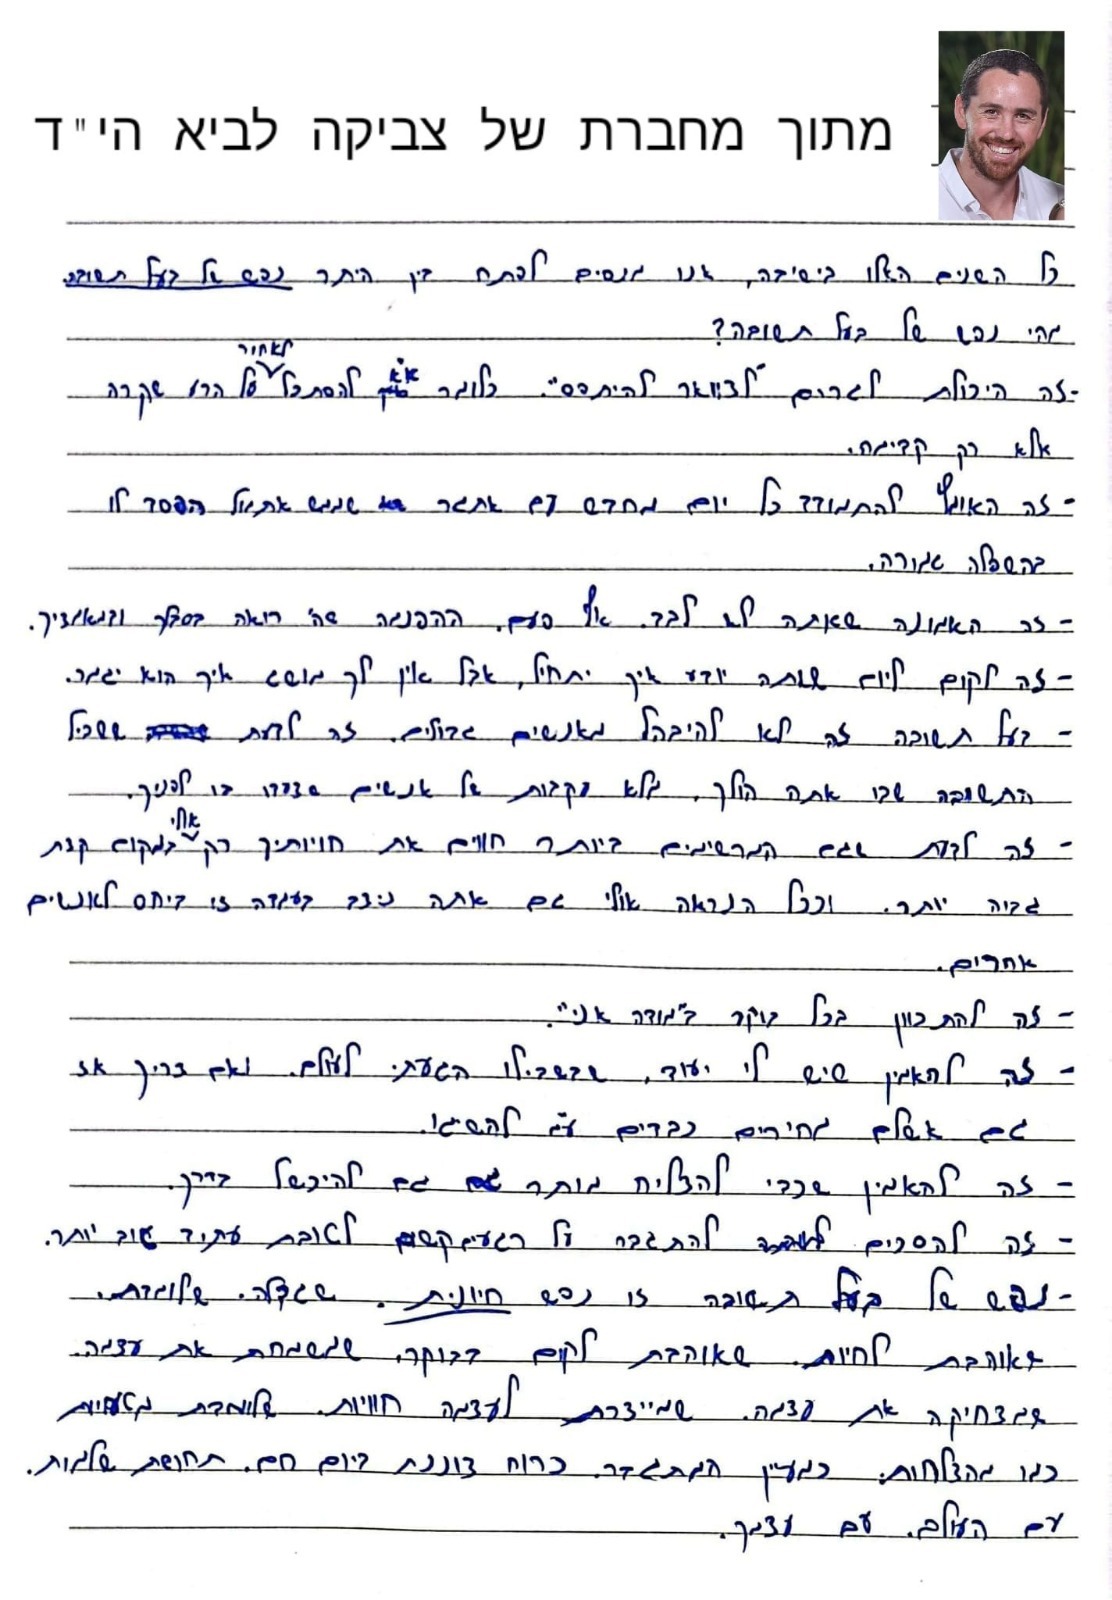 מתוך מחברת של צביקה לביא הי"ד
כל השנים האלו בישיבה, אנו מנסים לפתח בין היתר נפש של בעל תשובה.
מהי נפש של בעל תשובה?
-זה היכולת לגרום "לצוואר להיתפס". כלומר א"א להסתכל לאחור על הרע שקרה
אלא רק קדימה.
- זה האומץ להתמודד כל יום מחדש עם אתגר שממש אתמול הפסד לו
בהשפלה גמורה.
- זה האמונה שאתה לא לבד. אף פעם. ההפנמה שה' רואה בסבלך ובמאמציך.
- זה לקום ליום שאתה יודע איך יתחיל, אבל אין לך מושג איך הוא יגמר.
- בעל תשובה זה לא להיבהל מאנשים גדולים. זה לדעת ששביל
התשובה שבו אתה הולך, מלא עקבות של אנשים שצעדו בו לפניך.
- זה לדעת שגם המרשימים ביותר חווים את חוויותיך רק אולי במקום קצת
גבוה יותר. וככל הנראה אולי גם אתה ניצב בעמדה זו ביחס לאנשים
אחרים.
- זה להתכוון בכל בוקר ב"מודה אני".
- זה להאמין שיש לי יעוד, שבשבילו הגעתי לעולם. ואם צריך אז
גם אשלם מחירים כבדים ע"מ להשיגו.
- זה להאמין שכדי להצליח מותר גם להיכשל בדרך.
- זה להסכים להתגבר על רגעים קשים לטובת עתיד טוב יותר.
-נפש של בעל תשובה זו נפש חיונית. שגדלה. שלומדת.
שאוהבת לחיות. שאוהבת לקום בבוקר. שמשמחת את עצמה.
שמצחיקה את עצמה. שמייצרת לעצמה חוויות. שלומדת מטעויות
כמו מהצלחות. כמעיין המתגבר. כרוח צוננת ביום חם. תחושת שלמות.
עם העולם. עם עצמך.